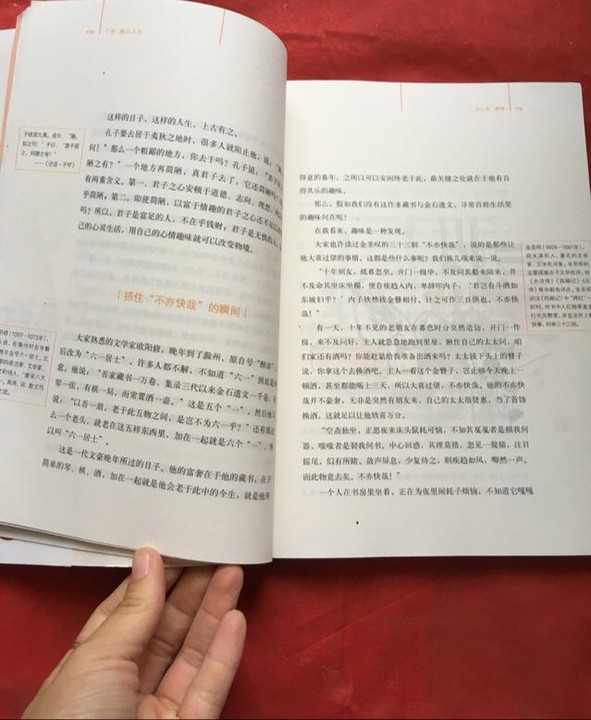 这样的日子，这样的人生，上古有之。
孔子要去居于夷狄之地时，很多人就阻止他，说：
何！”那么一个粗鄙的地方，你去干吗？孔子说：“君子居
陋之有？”一个地方再简陋，真君子去了，它还简陋吗？
有两重含义。第一，君子之心安顿于道德、志向、理想，
乎简陋；第二，即使简陋，以富于情趣的君子之心还不足以
吗？所以，君子是富足的人，不在乎钱财；君子是无惧的人，
己的心灵生活，用自己的心情趣味就可以改变物境。
子欲居九夷。或曰：“陋，
如之何！”子曰：“君子居
之，何陋之有！”
——《论语·子罕》
抓住“不亦快哉”的瞬间
大家熟悉的文学家欧阳修，晚年到了滁州，原自号“醉翁”
后改为“六一居士”，许多人都不解，不知道“六一”到底是
意。他说：“吾家藏书一万卷，集录三代以来金石遗文一千卷，
琴一张，有棋一局，而常置酒一壶。”这是五个“一”，然后他
说：“以吾一翁，老于此五物之间，是岂不为六一乎？”还有
么一个老头，就老在这五样东西里，加在一起就是六个“一”，
以叫“六一居士”。
这是一代文豪晚年所过的日子，他的富奢在于他的藏书，在于
简单的琴、棋、酒，加在一起就是他会老于此中的今生，就是他所
得意的暮年。之所以可以安闲终老于此，最关键之处就在于他有自
得其乐的趣味。
那么，假如我们没有这许多藏书与金石遗文，寻常百姓生活里
的趣味何在呢？
在我看来，趣味是一种发现。
大家也许读过金圣叹的三十三则“不亦快哉”，说的是那些让
他大喜过望的事情，这都是些什么事呢？我们拣几项来说一说。
“十年别友，抵暮忽至。开门一揖毕，不及问其船来陆来，并
不及命其坐床坐榻，便自疾趋入内，卑辞叩内子：‘君岂有斗酒如
东坡妇乎？’内子欣然拔金簪相付。计之可作三日供也，不亦快
哉！”
有一天，十年不见的老朋友在暮色时分突然造访，开门一作
揖，来不及问好，主人就急急忙忙跑到里屋，揪住自己的太太问，咱
们家还有酒吗？你能赶紧给我准备出酒来吗？太太拔下头上的簪子
说，你拿这个去换酒吧。主人一看这个金簪子，岂止够今天晚上一
顿酒，甚至都能喝上三天，所以大喜过望，不亦快哉。他的不亦快
哉并不豪奢，无非是突然有朋友来，自己的太太很贤惠，当了首饰
换酒，这就足以让他欣喜万分。
“空斋独坐，正思夜来床头鼠耗可恼，不知其戛戛者是损我何
器，嗤嗤者是裂我何书。中心回惑，其理莫措，忽见一狻猫，注目
摇尾，似有所睹。敛声屏息，少复待之，则疾趋如风，唧然一声。
而此物竟去矣。不亦快哉！”
一个人在书房里坐着，正在为夜里闹耗子烦恼，不知道它嘎嘎